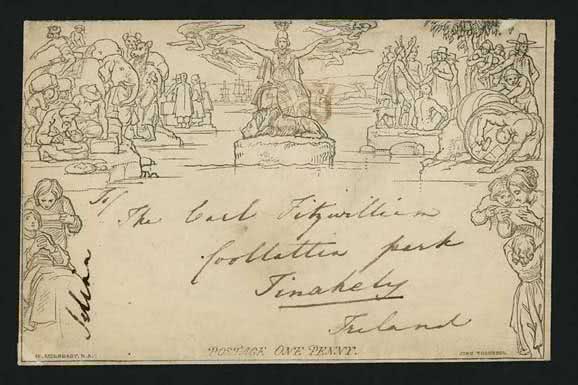 To
The Earl Fitzwilliam
Coollattin park
Tinahely
Ireland
POSTAGE ONE PENNY.
W. MULREADY, R.A.
JOHN THOMPSON.